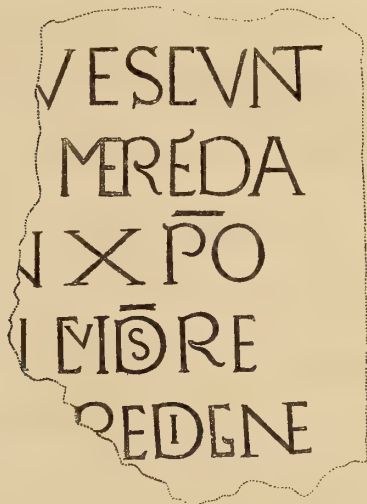 VESCVNT
MEREDA
N XP̅O
EMD̅SRE
REDIGNE